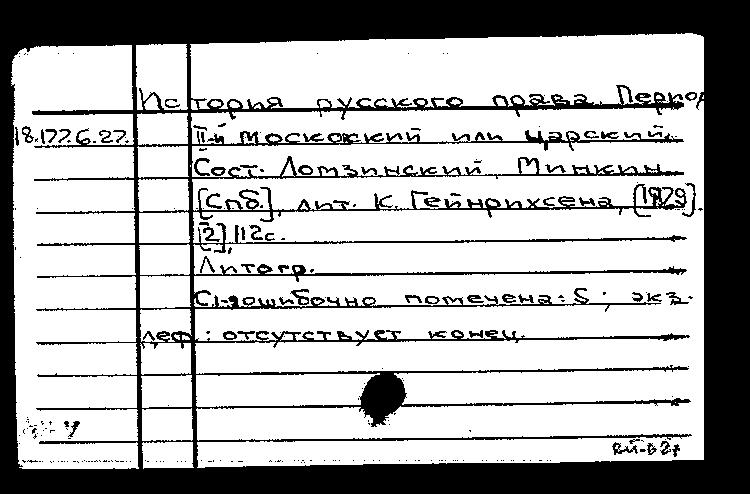 История русского права. Период
18.177.6.27. II-й московский или царский.
Сост. Ломзинский, Минкин.
[Спб.], лит. К. Гейнрихсена, [1879].
[2], 112с.
Литогр.
С1-я ошибочно помечена: 5; экз.
деф.: отсутствует конец.